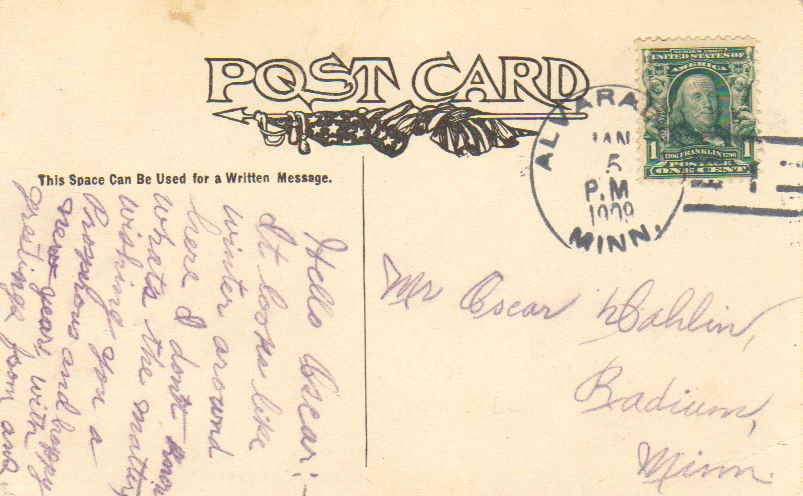 POST CARD
This Space Can Be Used for a Written Message.
Hello Oscar:-
It looks like
winter around
here I dont know
whats the matter
wishing you a
Prosprous and happy
new year, with
greetings from
UNITED STATES OF
AMERICA
1 1706 FRANKLIN 1790 1
POSTAGE
ONE CENT
ALVARA
JAN
5
P.M
1909
MINN.
Mr Oscar Dahlin,
Radium,
Minn.